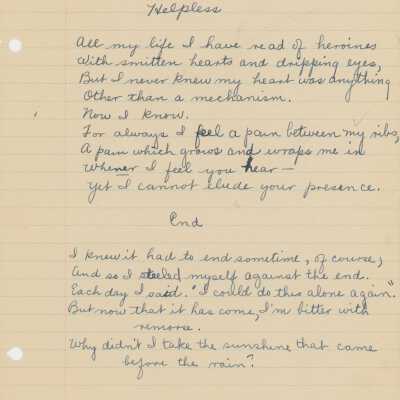 Helpless
All my life I have read of heroines
With smitten hearts and dripping eyes,
But I never knew my heart was anything
Other than a mechanism.
Now I know.
For always I feel a pain between my ribs,
A pain which grows and wraps me in
Whenever I feel you near—
Yet I cannot elude your presence.
End
I knew it had to end sometime, of course,
And so I steeled myself against the end.
Each day I said. "I could do this alone again."
But now that it has come, I'm bitter with
remorse.
Why didn't I take the sunshine that came
before the rain?